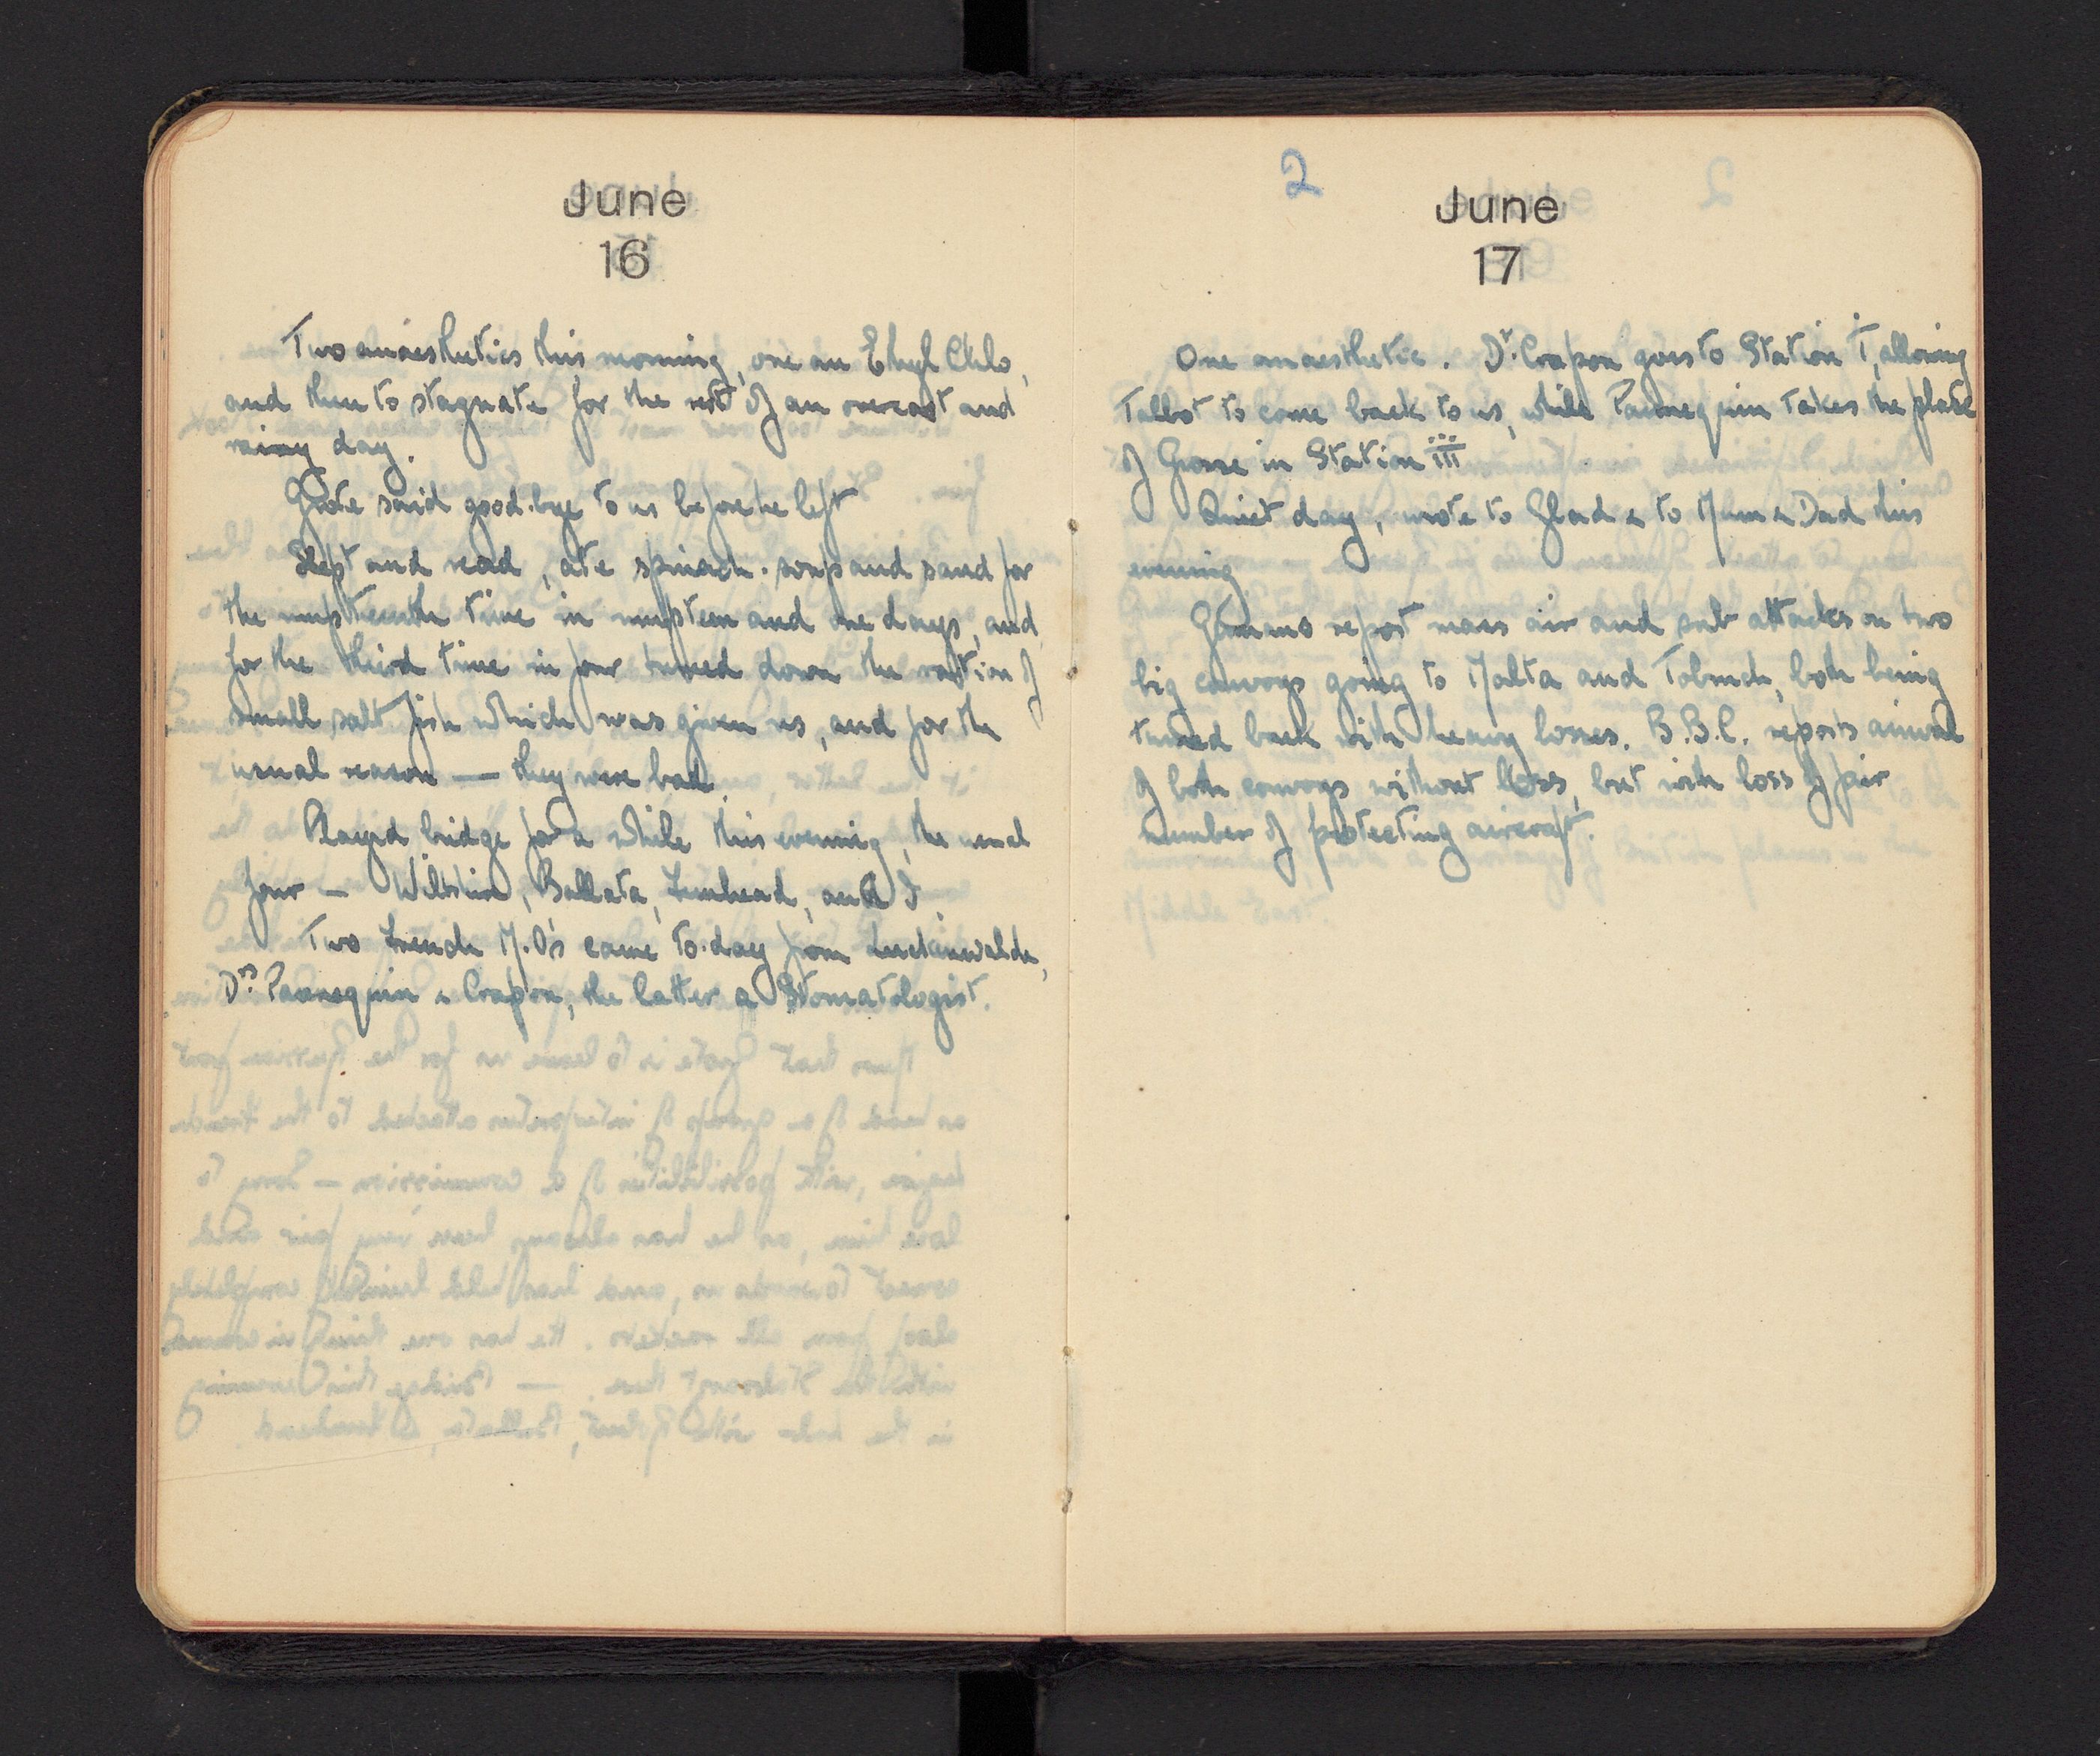 June
16
Two anaesthetics this morning, one an Ethyl Chlo,
and then to stagnate for the rest of an overcast and
rainy day.
Grote said good-bye to us before he left
Slept and read, ate spinach-soup and sand for
the umpteenth time in umpteen and one days, and
for the third time in four turned down the ration of
small salt fish which was given us, and for the
usual reason — they were bad.
Played bridge for a while this evening, the usual
four — Wiltshire, Ballata, and I.
Two French M.O's came to-day from Luckenwalde,
Drs Pannequin & Crapon, the latter a Stomatologist.
2
June
17
One anaesthetic. Dr. Crapon goes to Station I, allowing
Talbot to come back to us, while Pannequin takes the place
of Grosse in Station III
Quiet day, wrote to Glad & to Mum & Dad this
evening
Germans report mass air and sub attacks on two
big convoys going to Malta and Tobruch, both being
turned back with heavy losses. B.B.C. reports arrival
of both convoys without loss, but with loss of fair
number of protecting aircraft.